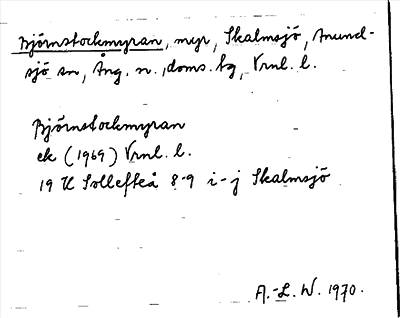 Björnstockmyran, myr, Skalmsjö, Anund-
sjö sn, Ång. n., doms. tg, Vrnl. l.
Björnstockmyran
ek (1969) Vrnl. l.
19 H Sollefteå 8-9 i-j Skalmsjö
A.-L. W. 1970.